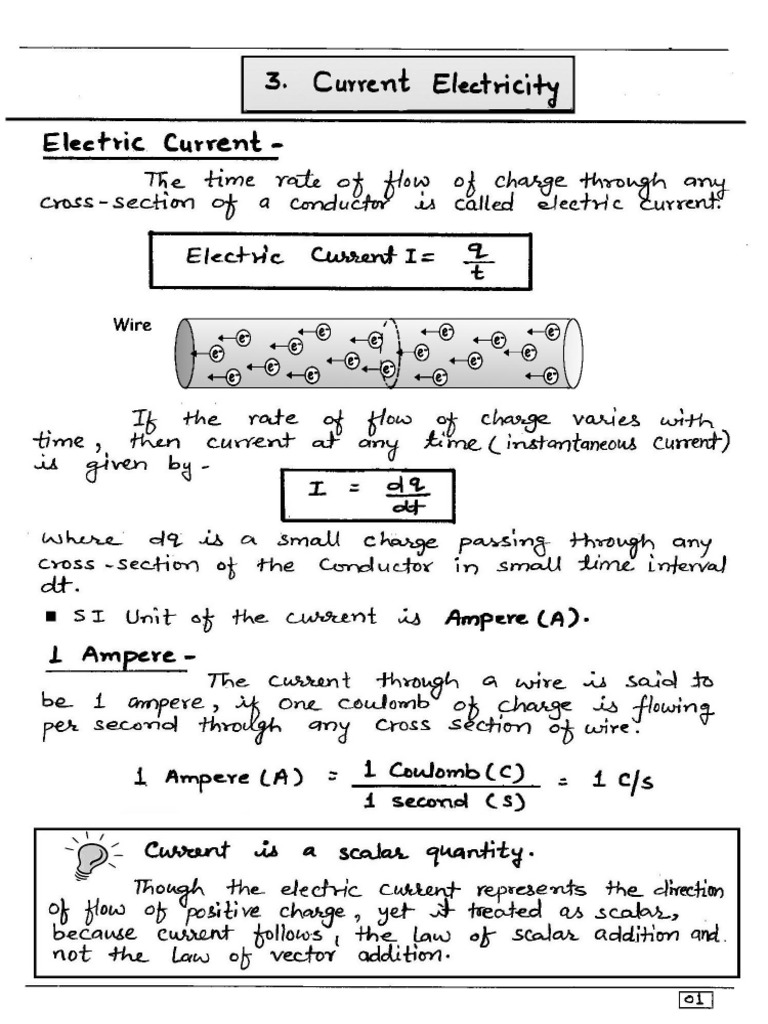 3. Current Electricity
Electric Current -
The time rate of flow of charge through any
cross-section of a conductor is called electric current.
Electric Current I = q/t
Wire
e⁻ e⁻ e⁻ e⁻ e⁻ e⁻
e⁻ e⁻ e⁻ e⁻ e⁻ e⁻
e⁻ e⁻ e⁻ e⁻ e⁻ e⁻
If the rate of flow of charge varies with
time, then current at any time (instantaneous current)
is given by -
I = dq/dt
where dq is a small charge passing through any
cross-section of the Conductor in small time interval
dt.
■ SI Unit of the current is Ampere (A).
1 Ampere -
The current through a wire is said to
be 1 ampere, if one coulomb of charge is flowing
per second through any cross section of wire.
1 Ampere (A) = 1 Coulomb (C) / 1 second (s) = 1 C/s
Current is a scalar quantity.
Though the electric current represents the direction
of flow of positive charge, yet it treated as scalar,
because current follows, the law of scalar addition and
not the law of vector addition.
01